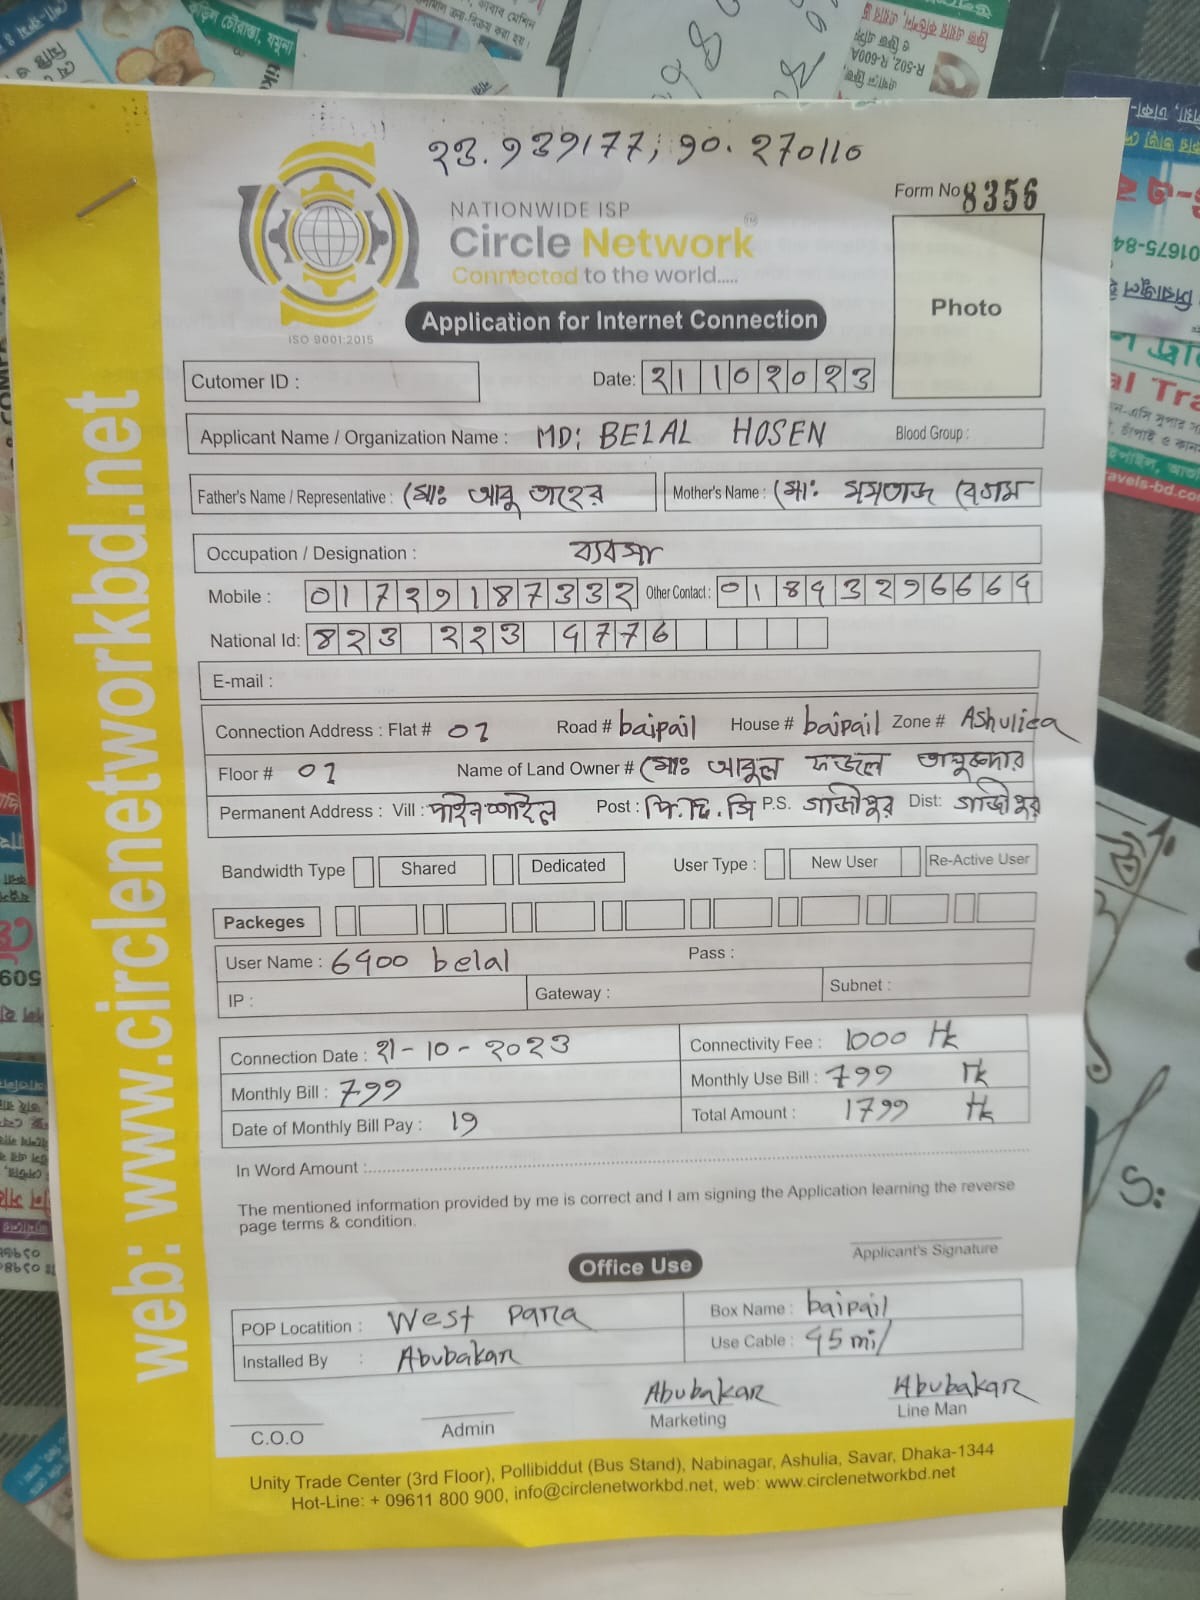 23.939177, 90.270110
Form No 8356
NATIONWIDE ISP
Circle Network TM
Connected to the world.....
ISO 9001:2015
Application for Internet Connection
Photo
Cutomer ID :
Date: 21 10 2023
Applicant Name / Organization Name : MD: BELAL HOSEN Blood Group :
Father's Name / Representative : মোঃ আবু তাহের Mother's Name : মোঃ মমতাজ বেগম
Occupation / Designation : ব্যবসা
Mobile : 01729187332 Other Contact : 01843296664
National Id: 823 223 4776
E-mail :
Connection Address : Flat # 01 Road # baipail House # baipail Zone # Ashulia
Floor # 01 Name of Land Owner # মোঃ আবুল ফজল তালুকদার
Permanent Address : Vill : পাইনশাইল Post : পি.ছি.জি P.S. গাজীপুর Dist: গাজীপুর
Bandwidth Type Shared Dedicated User Type : New User Re-Active User
Packeges
User Name : 6400 belal Pass :
IP : Gateway : Subnet :
Connection Date : 21-10-2023 Connectivity Fee : 1000 Tk
Monthly Bill : 799 Monthly Use Bill : 799 Tk
Date of Monthly Bill Pay : 19 Total Amount : 1799 Tk
In Word Amount :
The mentioned information provided by me is correct and I am signing the Application learning the reverse
page terms & condition.
Applicant's Signature
Office Use
POP Locatition : West para Box Name : baipail
Installed By : Abubakar Use Cable : 45 mi/
Abubakar Abubakar
C.O.O Admin Marketing Line Man
Unity Trade Center (3rd Floor), Pollibiddut (Bus Stand), Nabinagar, Ashulia, Savar, Dhaka-1344
Hot-Line: + 09611 800 900, info@circlenetworkbd.net, web: www.circlenetworkbd.net
web: www.circlenetworkbd.net
কড়িল চৌরাস্তা, যমুনা
R-502, R-600A
01675-84
al Tra
avels-bd.co
S: